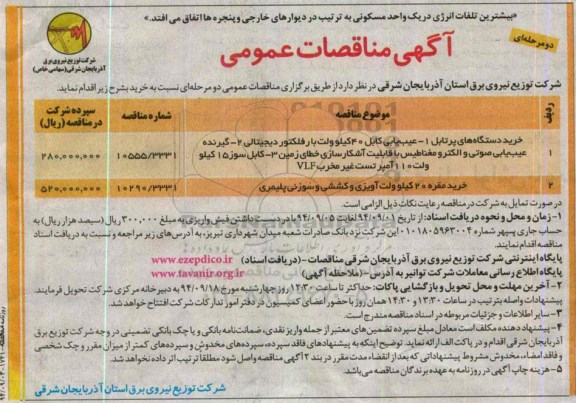 «بیشترین تلفات انرژی در یک واحد مسکونی به ترتیب در دیوارهای خارجی و پنجره ها اتفاق می افتد.»
شرکت توزیع نیروی برق
آذربایجان شرقی (سهامی خاص)
دو مرحله‌ای
آگهی مناقصات عمومی
شرکت توزیع نیروی برق استان آذربایجان شرقی در نظر دارد از طریق برگزاری مناقصات عمومی دو مرحله‌ای نسبت به خرید بشرح زیر اقدام نماید.
ردیف موضوع مناقصه شماره مناقصه سپرده شرکت در مناقصه (ریال)
۱ خرید دستگاه‌های پرتابل ۱- عیب‌یابی کابل ۴۰ کیلو ولت با رفلکتور دیجیتالی ۲- گیرنده
عیب‌یابی صوتی و الکترو مغناطیس با قابلیت آشکارسازی خطای زمین ۳- کابل سوز ۱۵ کیلو
ولت ۱۱۰ آمپر تست غیر مخرب VLF
۱۰۵۵۵/۳۳۳۱ ۲۸۰,۰۰۰,۰۰۰
۲ خرید مقره ۲۰ کیلو ولت آویزی و کششی و سوزنی پلیمری ۱۰۲۹۰/۳۳۳۱ ۵۲۰,۰۰۰,۰۰۰
در صورت تمایل به شرکت در مناقصه رعایت نکات ذیل الزامی است.
۱- زمان و محل و نحوه دریافت اسناد: از تاریخ ۹۴/۰۹/۰۱ لغایت ۹۴/۰۹/۰۵ با در دست داشتن فیش واریزی به مبلغ ۳۰۰,۰۰۰ ریال (سیصد هزار ریال) به
حساب جاری سپهر شماره ۰۱۰۱۸۰۵۹۶۳۰۰۴ این شرکت نزد بانک صادرات شعبه میدان شهرداری تبریز، به آدرس‌های زیر مراجعه و نسبت به دریافت اسناد
مناقصه اقدام نمایند.
پایگاه اینترنتی شرکت توزیع نیروی برق آذربایجان شرقی مناقصات - (دریافت اسناد) www.ezepdico.ir
پایگاه اطلاع رسانی معاملات شرکت توانیر به آدرس - (ملاحظه آگهی) www.tavanir.org.ir
۲- آخرین مهلت و محل تحویل و بازگشایی پاکات: حداکثر تا ساعت ۱۲:۳۰ روز چهارشنبه مورخ ۹۴/۰۹/۱۸ به دبیرخانه مرکزی شرکت تحویل فرمایند.
پیشنهادات واصله بترتیب در ساعات ۱۳:۳۰ و ۱۴:۳۰ همان روز با حضور اعضای کمیسیون در دفتر امور تدارکات شرکت افتتاح خواهد شد.
۳- سایر اطلاعات و جزئیات مربوطه در اسناد مناقصه مندرج است.
۴- پیشنهاد دهنده مکلف است معادل مبلغ سپرده تضمین‌های معتبر از جمله واریز نقدی، ضمانت‌نامه بانکی و یا چک بانکی تضمینی در وجه شرکت توزیع برق
آذربایجان شرقی اقدام و در پاکت الف ارائه نماید. توضیح اینکه به پیشنهادهای فاقد سپرده، سپرده‌های مخدوش و سپرده‌های کمتر از میزان مقرر و چک شخصی
و فاقد امضاء، مخدوش مشروط پیشنهاداتی که بعد از انقضاء مدت مقرر در بند ۲ آگهی مناقصه واصل شود مطلقا ترتیب اثر داده نخواهد شد.
۵- هزینه چاپ آگهی در روزنامه به عهده برندگان مناقصه می‌باشد.
شرکت توزیع نیروی برق استان آذربایجان شرقی